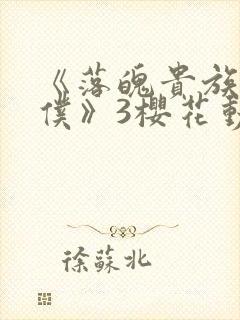 《落魄貴族
僕》3櫻花動
徐蘇北